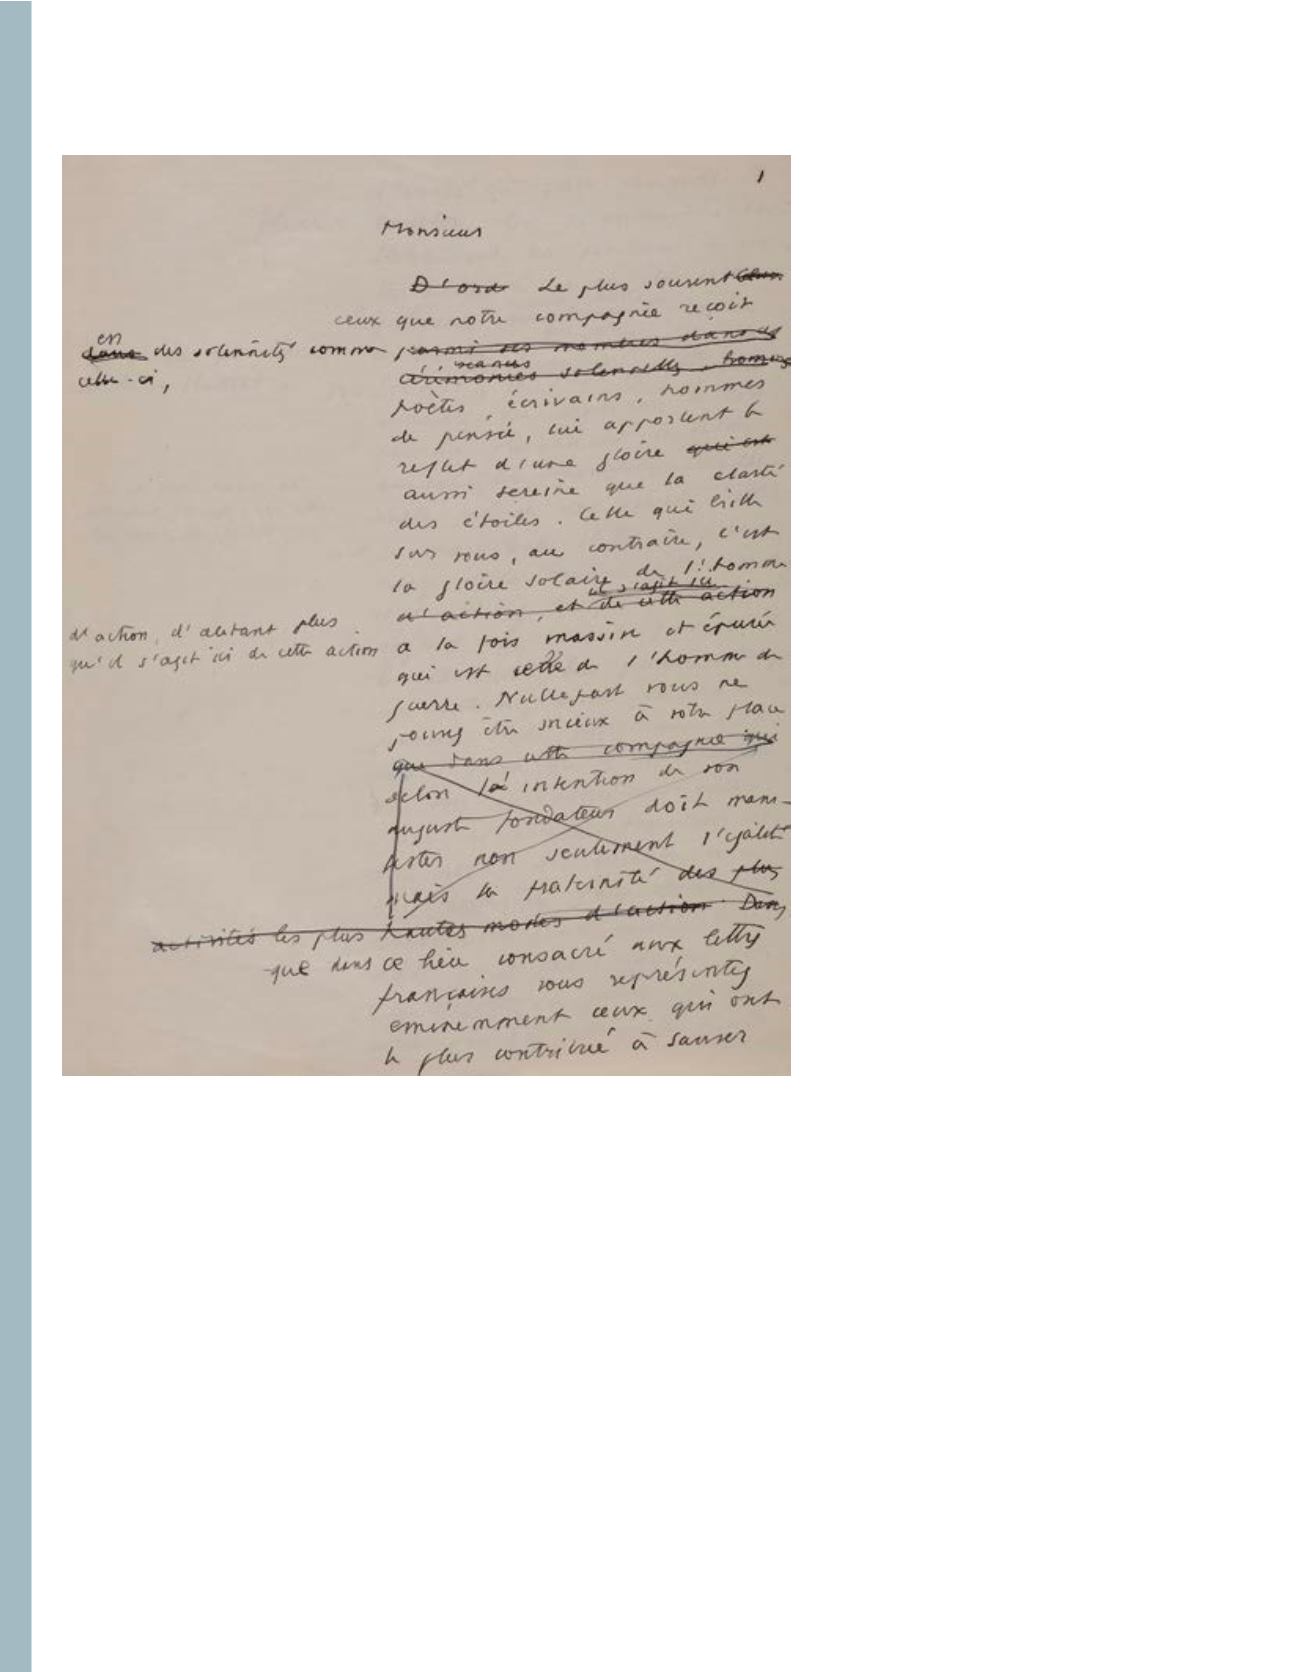 1
Monsieur
D'ord Le plus souvent
ceux que notre compagnie reçoit
en
dans des solennités comme
celle-ci,
parmi ses membres dans ces
séances
cérémonies solennelles, hommes
poètes, écrivains, hommes
de pensée, lui apportent le
reflet d'une gloire qui est
aussi sereine que la clarté
des étoiles. Celle qui brille
sur vous, au contraire, c'est
la gloire solaire de l'homme
il s'agit ici
d'action, et de cette action
d'action, d'autant plus
qu'il s'agit ici de cette action
à la fois massive et épurée
qui est celle de l'homme de
guerre. Nulle part vous ne
pouvez être mieux à votre place
que dans cette compagnie qui
selon l'intention de son
auguste fondateur doit mani-
fester non seulement l'égalité
mais la fraternité des plus
activités les plus hautes modes d'action. Dans
que dans ce lieu consacré aux lettres
françaises vous représentez
éminemment ceux qui ont
le plus contribué à sauver